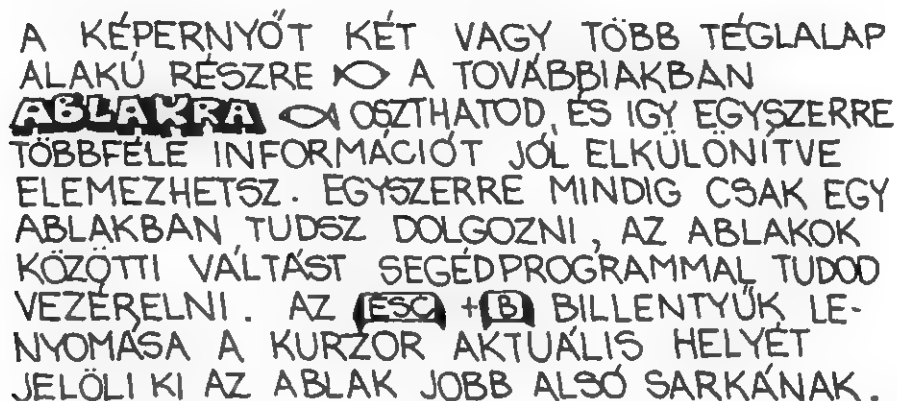 A KÉPERNYŐT KÉT VAGY TÖBB TÉGLALAP
ALAKÚ RÉSZRE A TOVÁBBIAKBAN
ABLAKRA OSZTHATOD, ÉS IGY EGYSZERRE
TÖBBFÉLE INFORMÁCIÓT JÓL ELKÜLÖNÍTVE
ELEMEZHETSZ. EGYSZERRE MINDIG CSAK EGY
ABLAKBAN TUDSZ DOLGOZNI, AZ ABLAKOK
KÖZÖTTI VÁLTÁST SEGÉDPROGRAMMAL TUDOD
VEZÉRELNI. AZ ESC + B BILLENTYŰK LE-
NYOMÁSA A KURZOR AKTUÁLIS HELYÉT
JELÖLI KI AZ ABLAK JOBB ALSÓ SARKÁNAK.